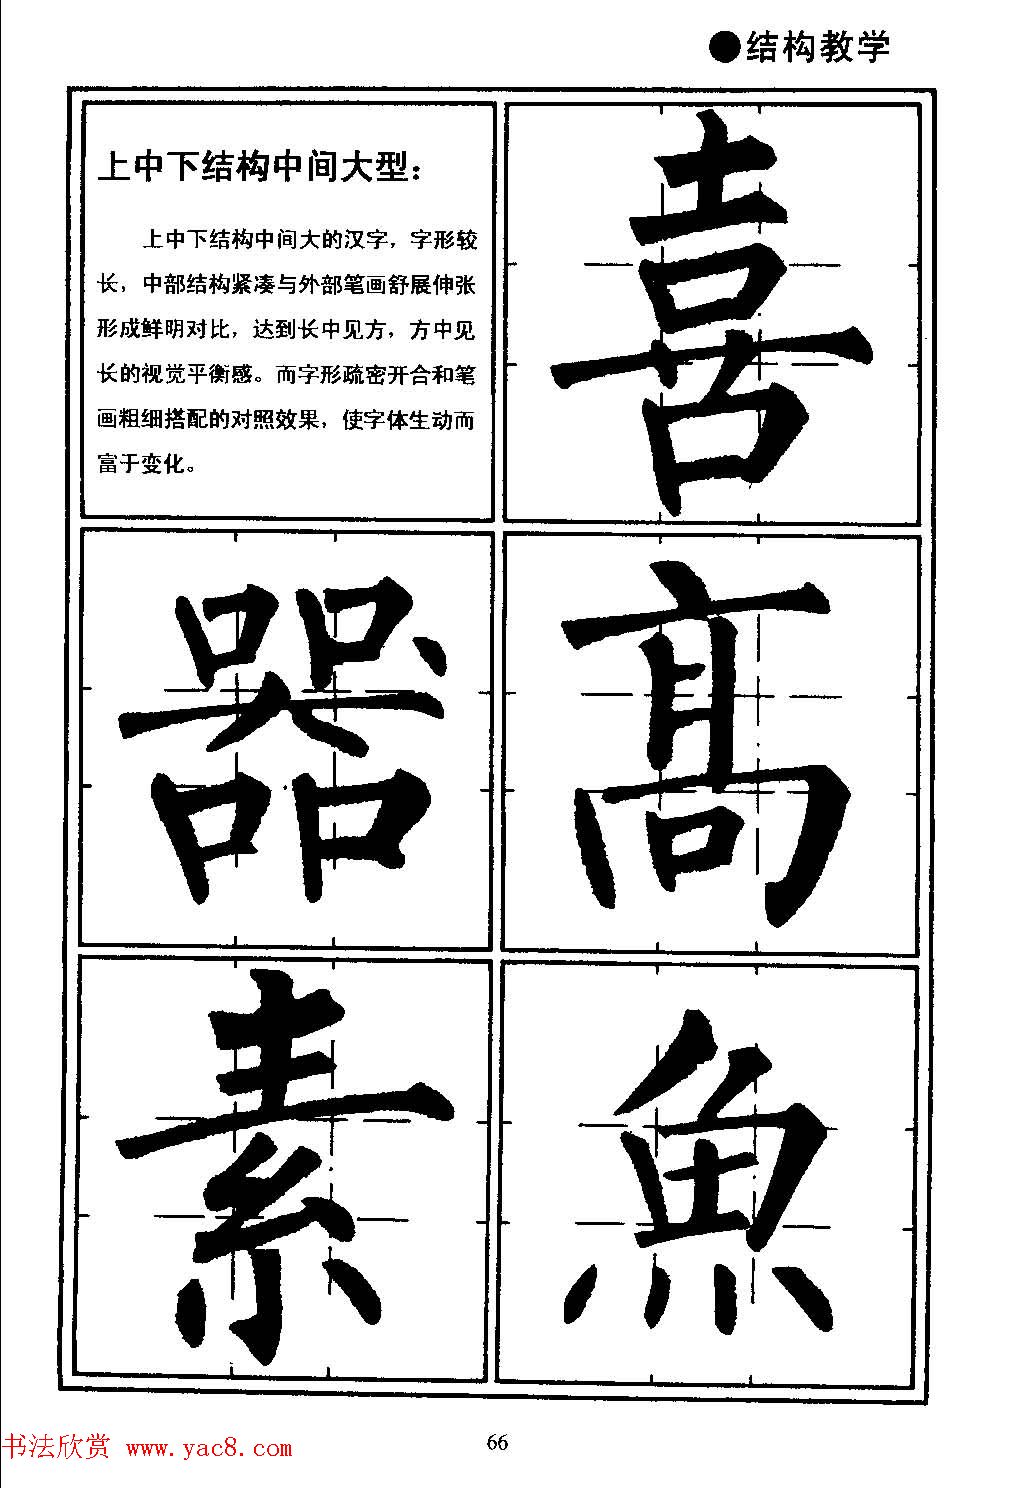 ●结构教学
上中下结构中间大型：
上中下结构中间大的汉字，字形较
长，中部结构紧凑与外部笔画舒展伸张
形成鲜明对比，达到长中见方，方中见
长的视觉平衡感。而字形疏密开合和笔
画粗细搭配的对照效果，使字体生动而
富于变化。
喜
器
髙
素
魚
书法欣赏 www.yac8.com
66